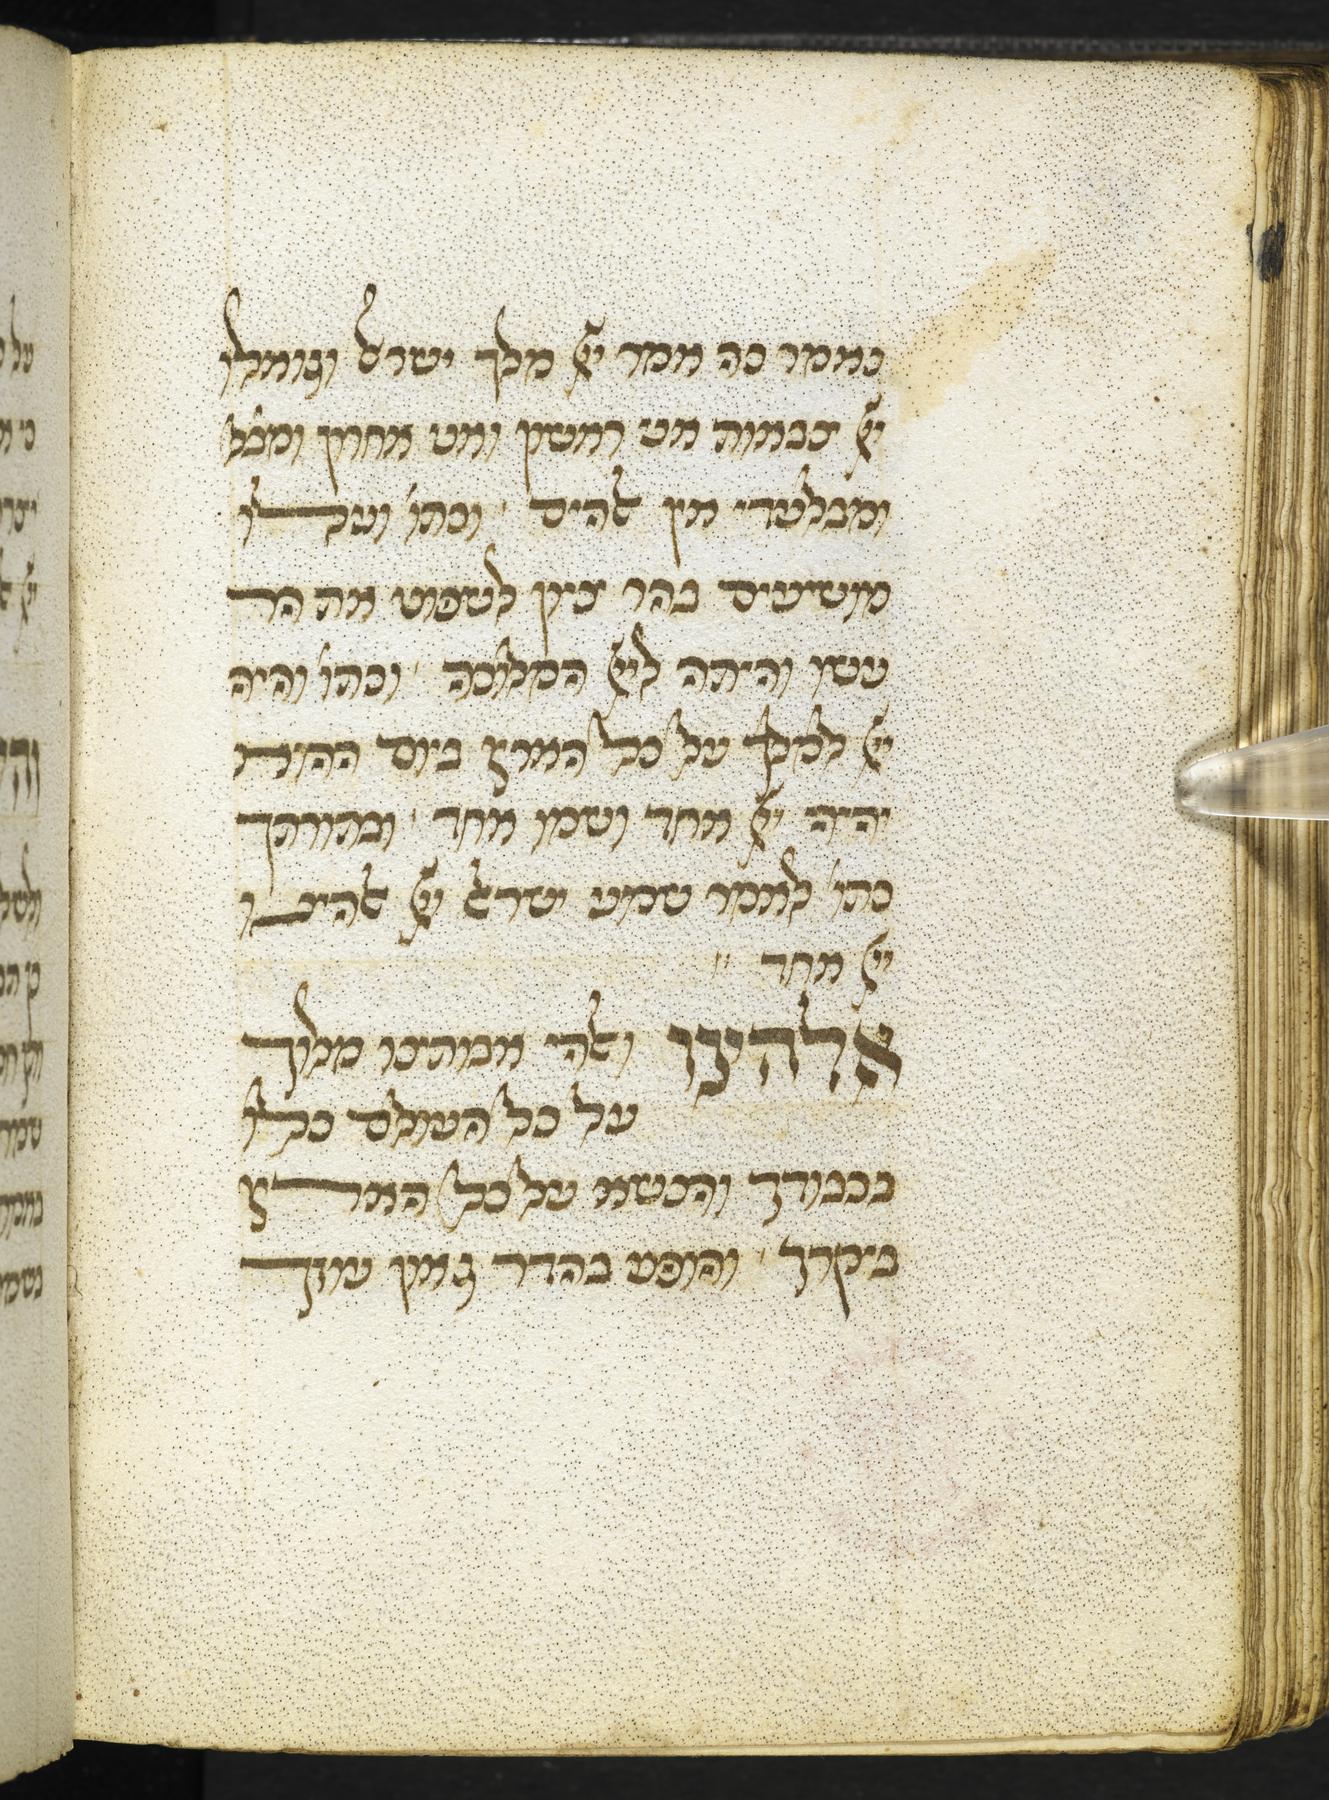 כאמר כה אמר יי מלך ישראל וגואלו
יי צבאות אני ראשון ואני אחרון ומבל
ומבלעדי אין אלהים ׳ וכתו׳ ועלו
מושיעים בהר ציון לשפוט את הר
עשו והיתה ליי המלוכה ׳ וכתו׳ והיה
יי למלך על כל הארץ ביום ההוא
יהיה יי אחד ושמו אחד ׳ ובתורתך
כתו׳ לאמר שמע ישראל יי אלהינו
יי אחד ״
אלהינו ואלהי אבותינו מלוך
על כל העולם כלו
בכבודך והנשא על כל הארץ
ביקרך ׳ והופע בהדר גאון עוזך